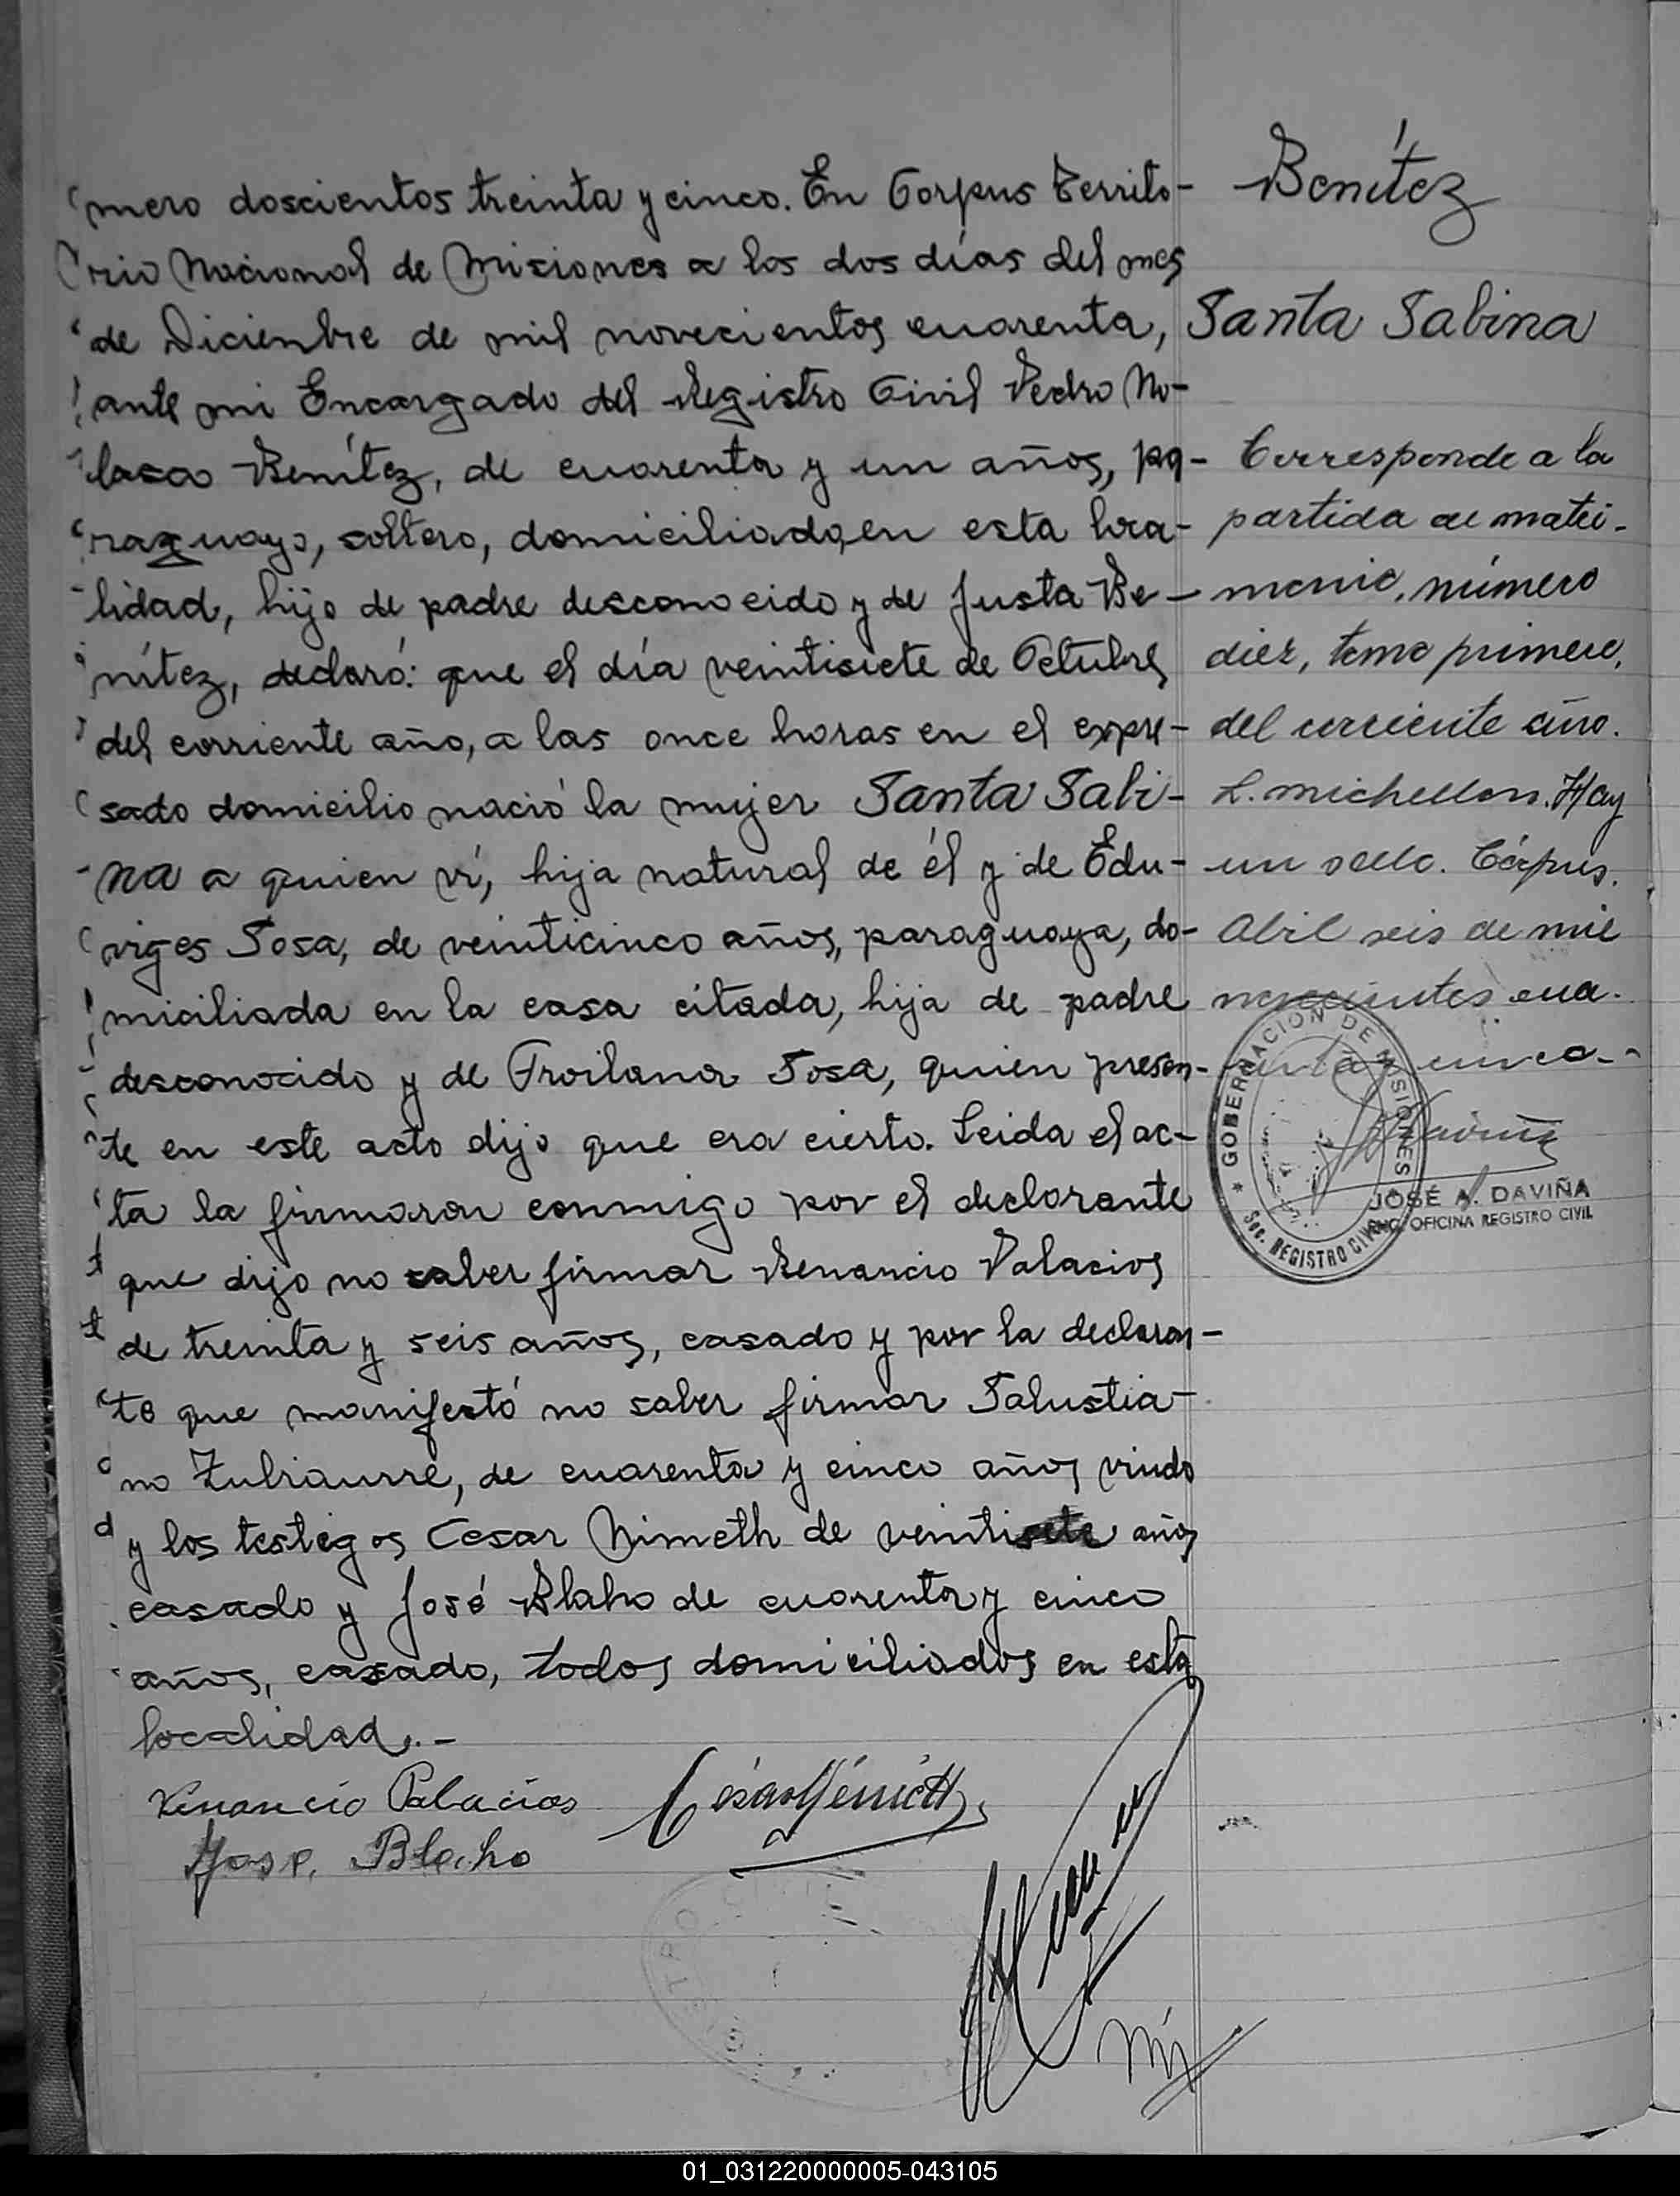 mero doscientos treinta y cinco. En Corpus Territo-
rio Nacional de Misiones a los dos días del mes
de Diciembre de mil novecientos cuarenta,
ante mi Encargado del Registro Civil Pedro No-
lasco Benítez, de cuarenta y un años, pa-
raguayo, soltero, domiciliado en esta loca-
lidad, hijo de padre desconocido y de Justa Be-
nítez, declaró: que el día veintisiete de Octubre
del corriente año, a las once horas en el expre-
sado domicilio nació la mujer Santa Sabi-
na a quien ví, hija natural de él y de Edu-
viges Sosa, de veinticinco años, paraguaya, do-
miciliada en la casa citada, hija de padre
desconocido y de Froilana Sosa, quien presen-
te en este acto dijo que era cierto. Leida el ac-
ta la firmaron conmigo por el declarante
que dijo no saber firmar Venancio Palacios
de treinta y seis años, casado y por la declaran-
te que manifestó no saber firmar Salustia-
no Zubiaurre, de cuarenta y cinco años viudo
y los testigos Cesar Nimeth de veintisiete años
casado y José Blaho de cuarenta y cinco
años, casado, todos domiciliados en esta
localidad.-
Venancio Palacios
José Blaho
Benítez
Santa Sabina
Corresponde a la
partida de matri-
monio, número
diez, tomo primero,
del corriente año.
L. Michellon. Hay
un sello. Córpus,
Abril seis de mil
novecientos cua-
renta y cinco.-
GOBERNACION DE MISIONES
Sec. REGISTRO CIVIL
JOSÉ A. DAVIÑA
ENC. OFICINA REGISTRO CIVIL
01_031220000005-043105